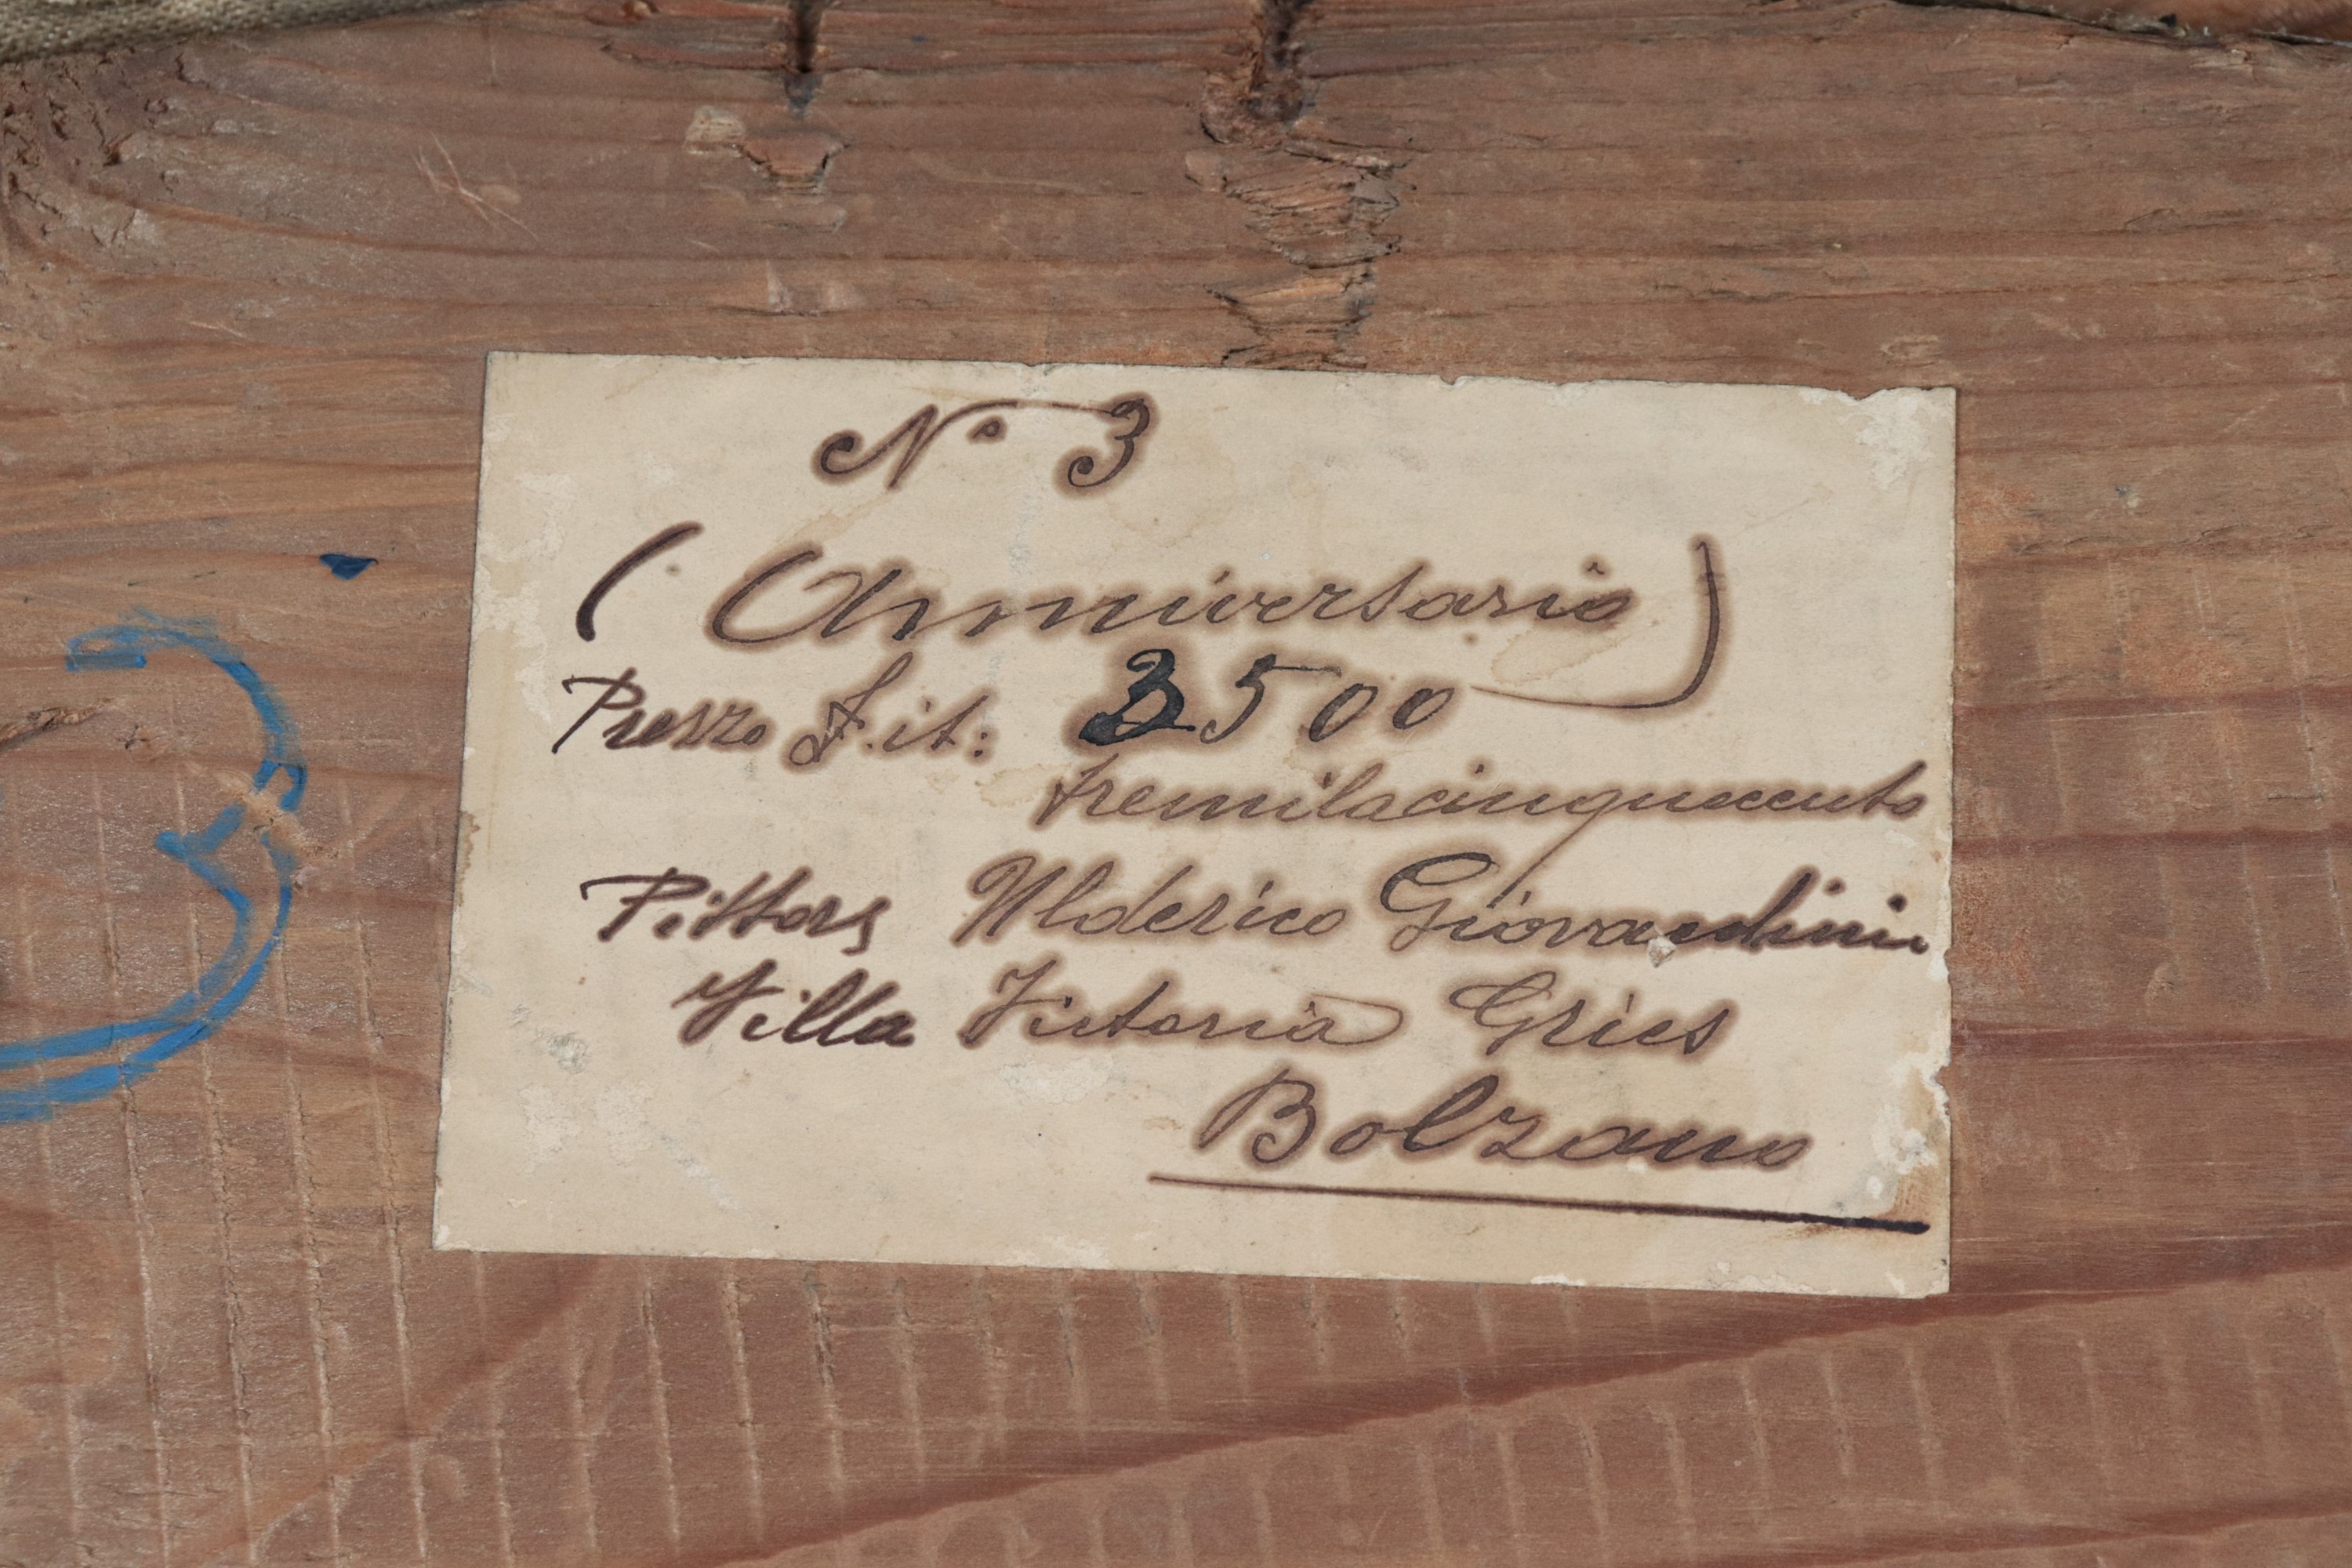 N° 3
(Anniversario)
Prezzo £.it: 3500
tremilacinquecento
Pittore Ulderico Giovacchini
Villa Victoria Gries
Bolzano
3